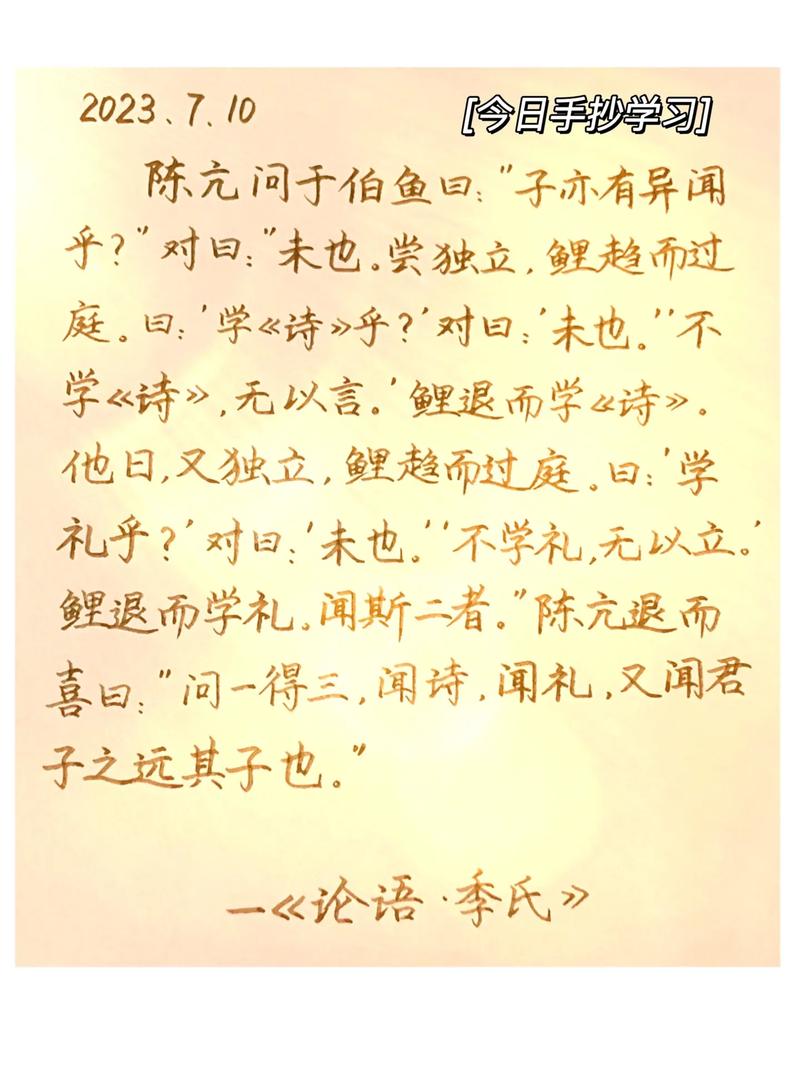 2023.7.10 [今日手抄学习]
陈亢问于伯鱼曰："子亦有异闻
乎？"对曰："未也。尝独立，鲤趋而过
庭。曰：'学《诗》乎？'对曰：'未也。''不
学《诗》，无以言。'鲤退而学《诗》。
他日，又独立，鲤趋而过庭。曰：'学
礼乎？'对曰：'未也。''不学礼，无以立。'
鲤退而学礼。闻斯二者。"陈亢退而
喜曰："问一得三，闻诗，闻礼，又闻君
子之远其子也。"
—《论语·季氏》